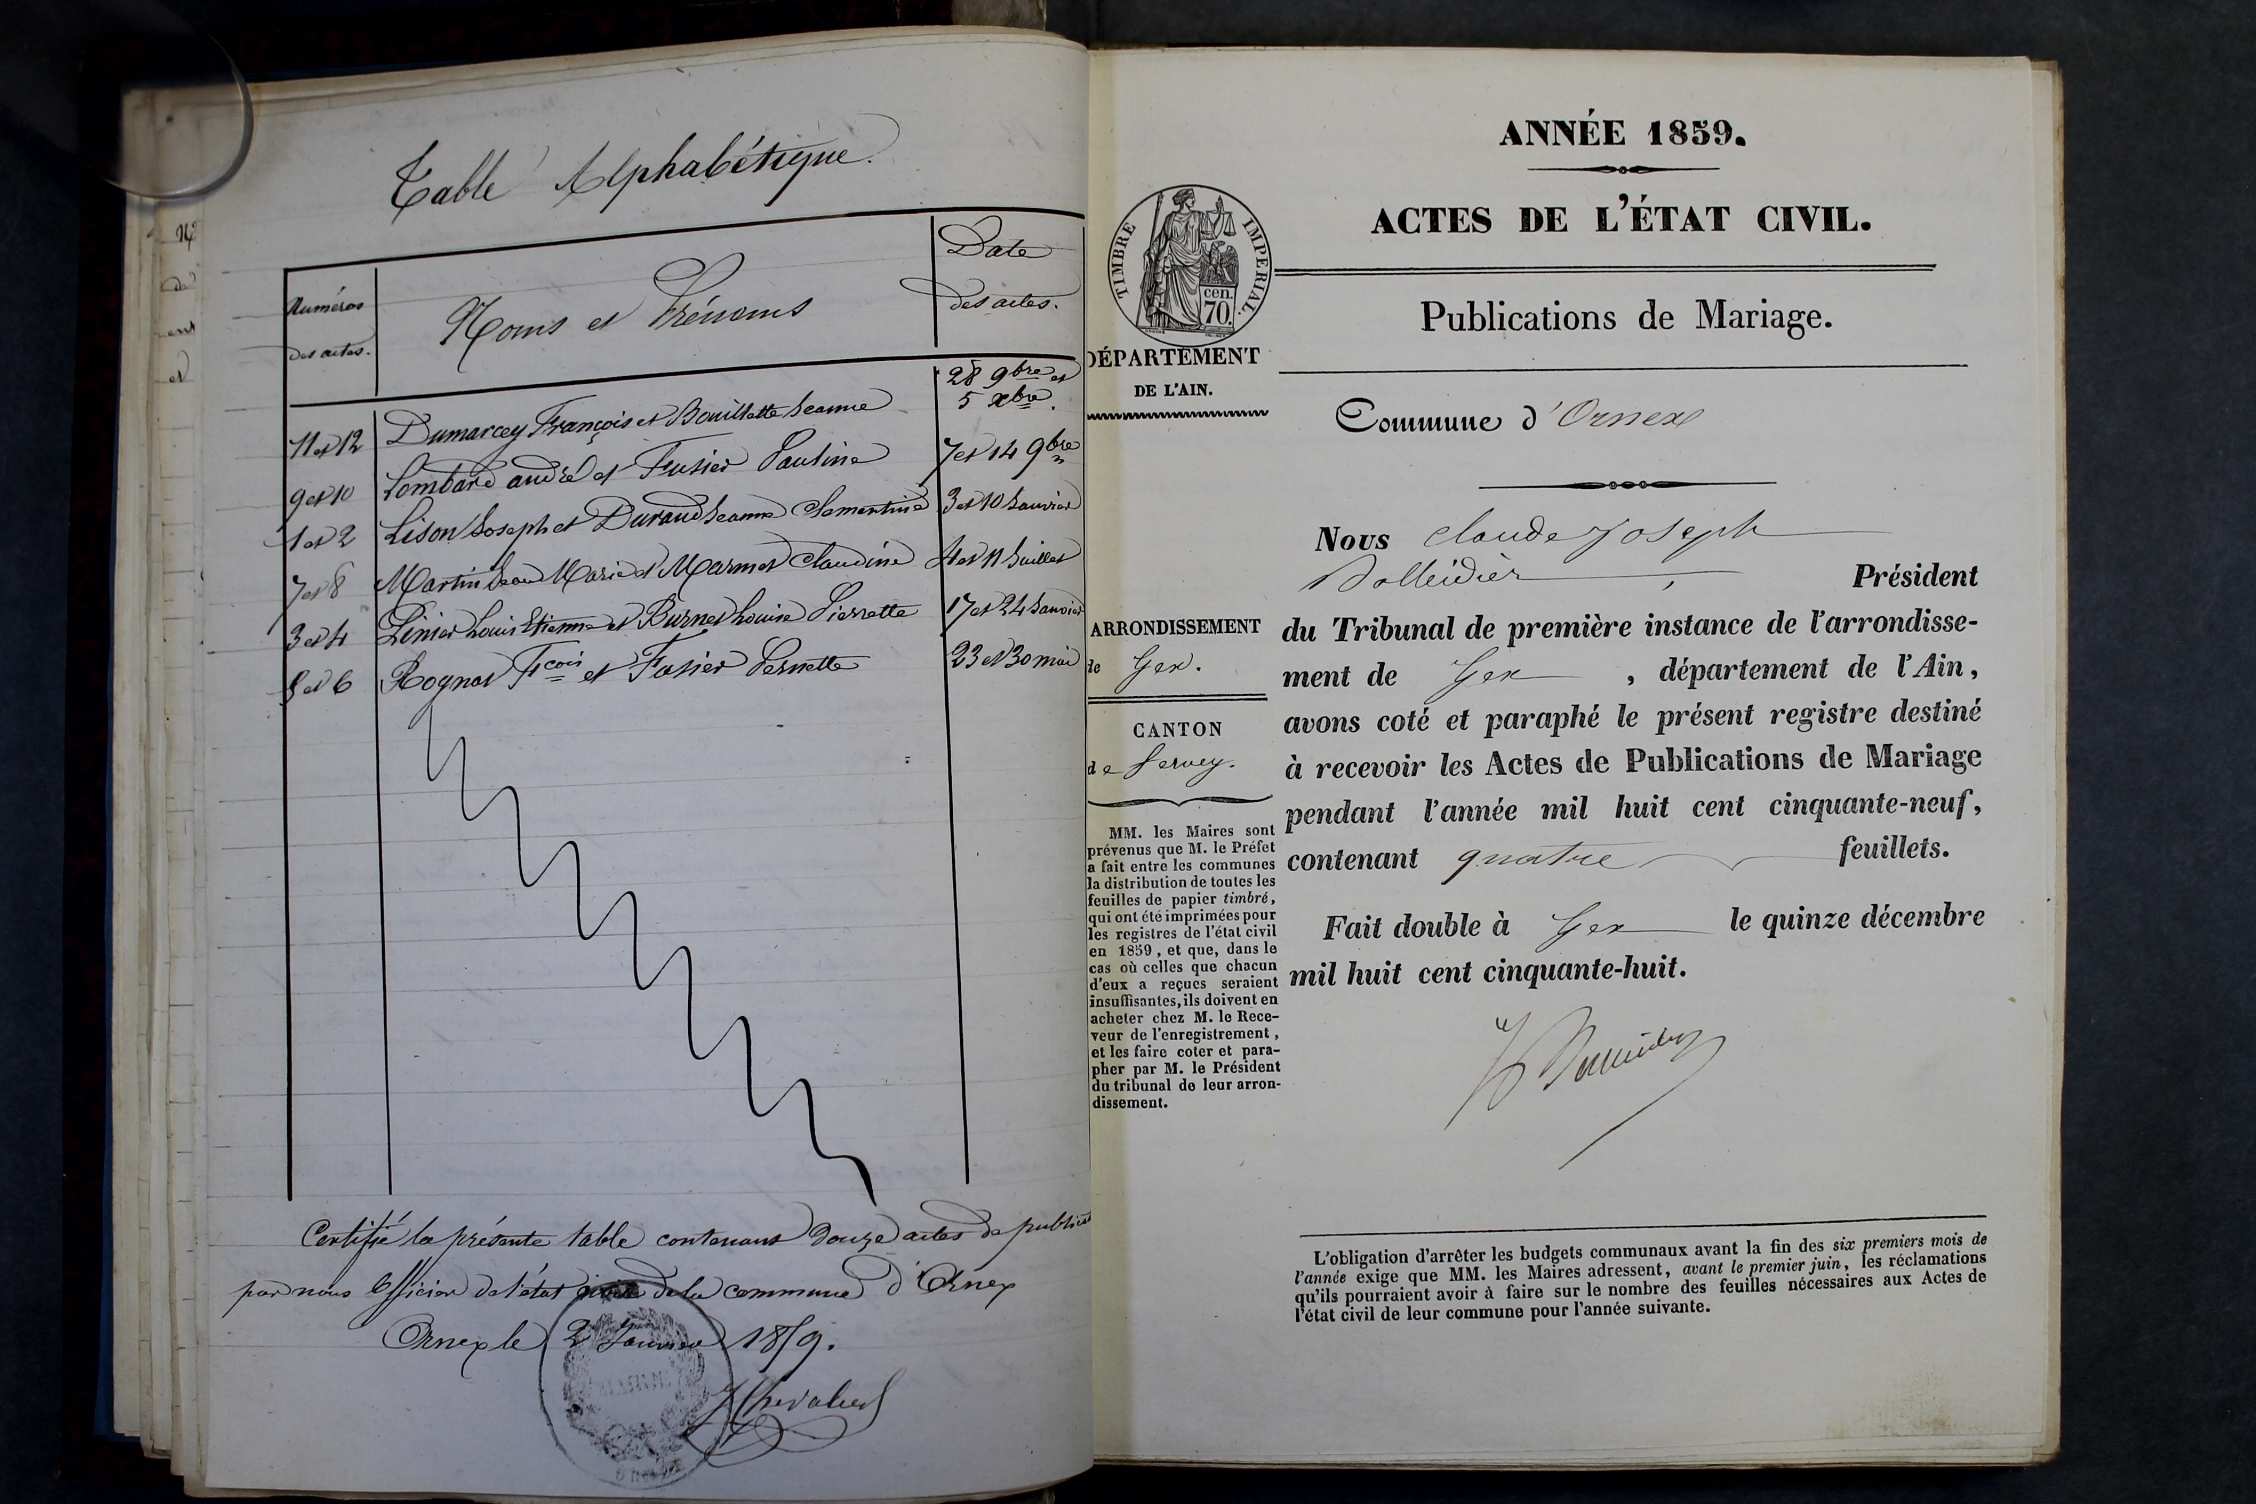 Table Alphabétique.
Numéros des actes.
Noms et Prénoms
Date des actes.
11 et 12 Dumarcey François et Bouillette Jeanne 28 9bre et 5 xbre.
9 et 10 Lombard andré et Fusier Pauline 7 et 14 9bre
1 et 2 Lison Joseph et Durand Jeanne Clementine 3 et 10 Janvier
7 et 8 Martin Jean Marie et Marmet Claudine 4 et 11 Juillet
3 et 4 Linier Louis Etienne et Burnet Louise Pierrette 17 et 24 Janvier
5 et 6 Rognat Fcois et Fusier Pernette 23 et 30 mai
Certifié la présente table contenant Douze actes de public
par nous Officier de l'état civil de la commune d'Ornex
Ornex le 2 Janvier 1859.
J Chevalier
ANNÉE 1859.
ACTES DE L'ÉTAT CIVIL.
Publications de Mariage.
TIMBRE IMPERIAL.
cen.
70.
DÉPARTEMENT
DE L'AIN.
ARRONDISSEMENT
de Gex.
CANTON
de Fervey.
MM. les Maires sont
prévenus que M. le Préfet
a fait entre les communes
la distribution de toutes les
feuilles de papier timbré,
qui ont été imprimées pour
les registres de l'état civil
en 1859, et que, dans le
cas où celles que chacun
d'eux a reçues seraient
insuffisantes, ils doivent en
acheter chez M. le Rece-
veur de l'enregistrement,
et les faire coter et para-
pher par M. le Président
du tribunal de leur arron-
dissement.
Commune d'Ornex
Nous Claude Joseph
Président
du Tribunal de première instance de l'arrondisse-
ment de Gex, département de l'Ain,
avons coté et paraphé le présent registre destiné
à recevoir les Actes de Publications de Mariage
pendant l'année mil huit cent cinquante-neuf,
contenant quatre feuillets.
Fait double à Gex le quinze décembre
mil huit cent cinquante-huit.
L'obligation d'arrêter les budgets communaux avant la fin des six premiers mois de
l'année exige que MM. les Maires adressent, avant le premier juin, les réclamations
qu'ils pourraient avoir à faire sur le nombre des feuilles nécessaires aux Actes de
l'état civil de leur commune pour l'année suivante.